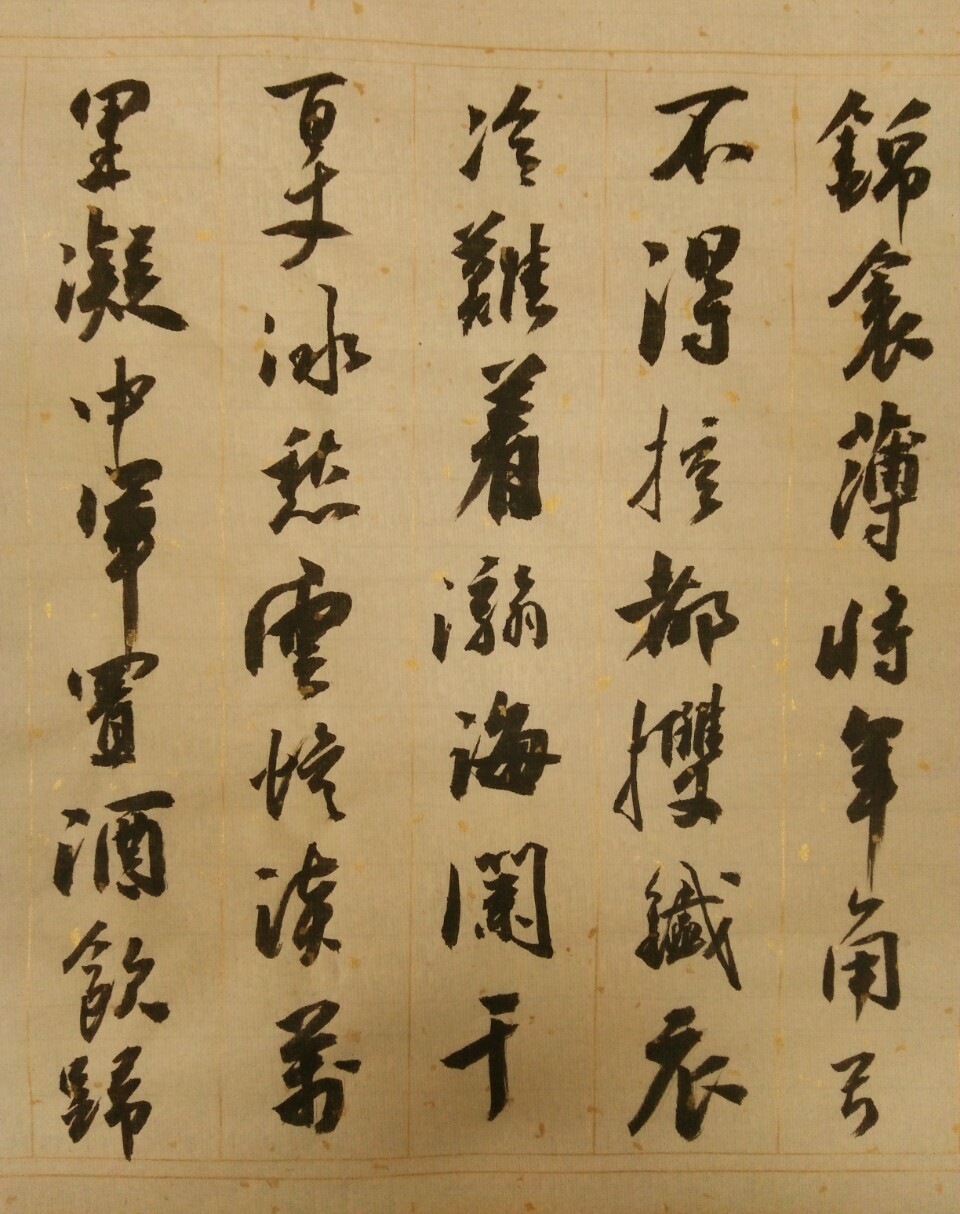 錦衾薄将軍角弓
不得控都護鐵衣
冷難着瀚海闌干
百丈冰愁雲慘淡萬
里凝中軍置酒飲歸